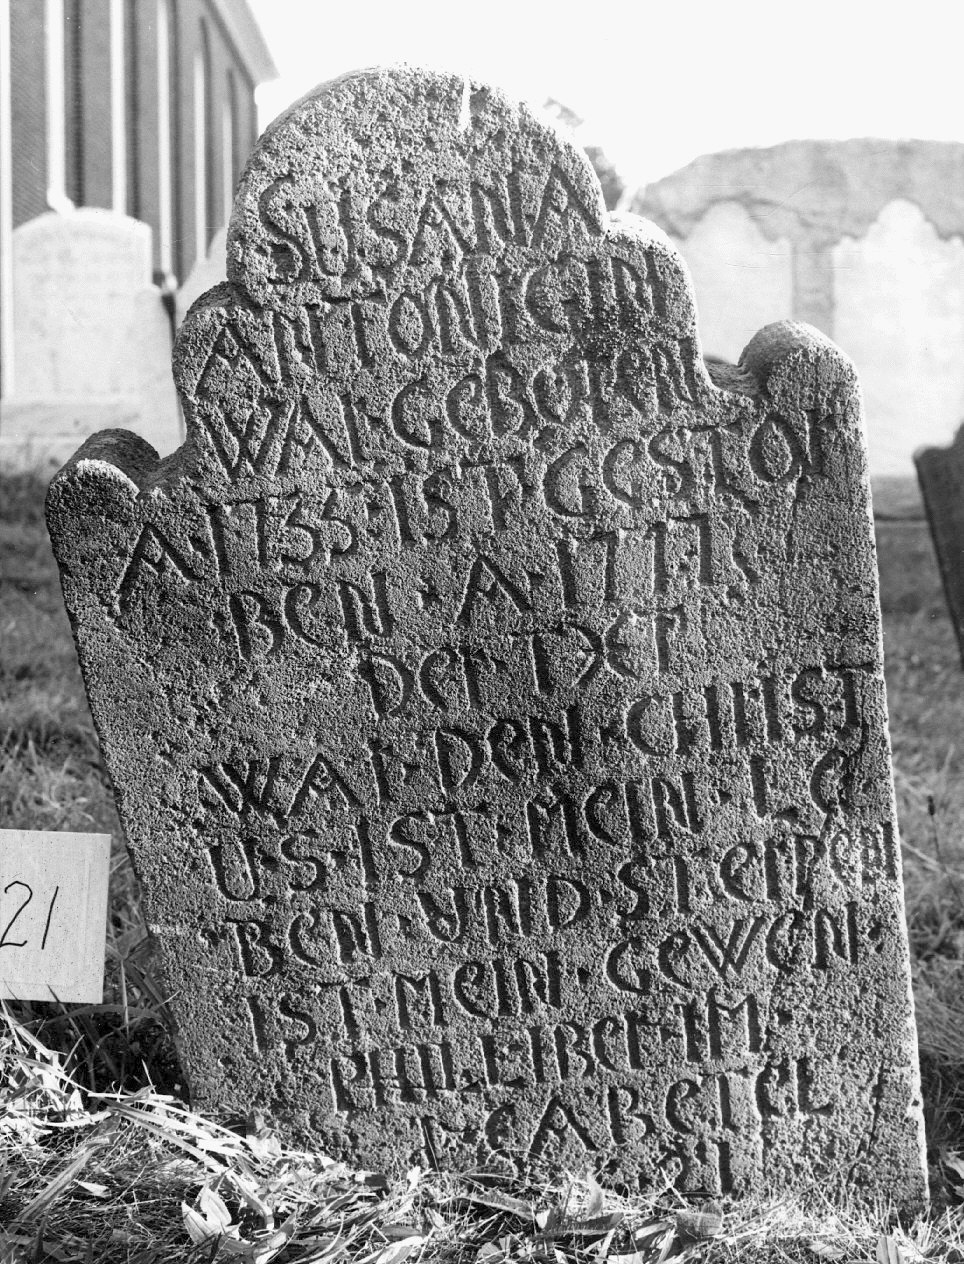 SUSANA
ANTONIEGIN
WAR·GEBOREN
A1733·IST·GESTOR
BEN·A·1771
DER·TEXT
WAR·DEN·CHRIST
US·IST·MEIN·LE
BEN·UND·STERBEN
IST·MEIN·GEWEN
PHILIBER·IM
21